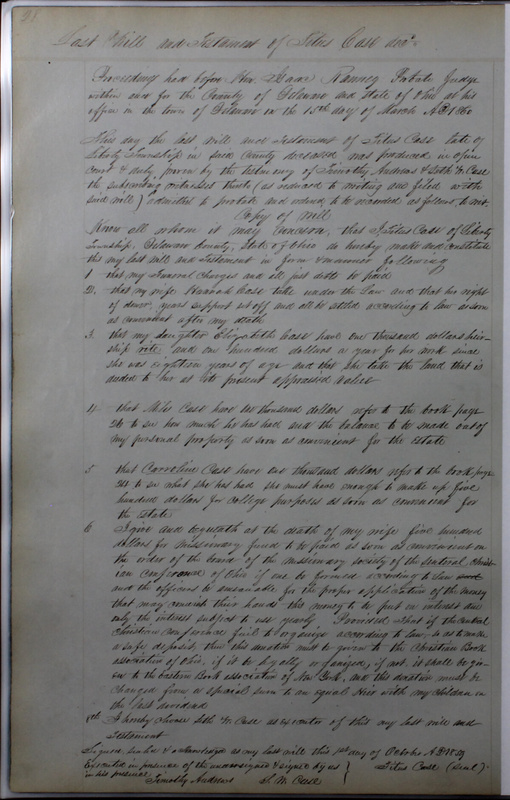 21
Last Will and Testament of Titus Case decd
Proceedings had before Hon. Isaac Ranney Probate Judge
within and for the County of Delaware and State of Ohio at his
office in the town of Delaware on the 15th day of March AD 1860
This day the last will and Testament of Titus Case late of
Liberty Township in said County deceased was produced in open
Court & duly proven by the testimony of Timothy Andrews & Seth W. Case
the subscribing witnesses thereto (as reduced to writing and filed with
said will) admitted to probate and ordered to be recorded as follows to wit
Copy of Will
Know all whom it may concern, that I Titus Case of Liberty
Township, Delaware County, State of Ohio do hereby make and constitute
this my last will and Testament in form & manner following
1 that my Funeral Charges and all just debts be paid
2. that my wife Case take under the Law and that her right
of dower, years support set off and all be settled according to law as soon
as convenient after my death
3. that my daughter Elizabeth Case have one thousand dollars heir-
ship and one hundred dollars a year for her work since
she was eighteen years of age and that she take the land that is
deeded to her at its present appraised value
4. that Case have thousand dollars refer to the book page
26 to see how much he has had and the balance to be made out of
my personal property as soon as convenient for the Estate
5. that Carroline Case have one thousand dollars refer to the book page
to see what she has had she must have enough to make up five
hundred dollars for College purposes as soon as convenient for
the Estate
6 I give and bequeath at the death of my wife five hundred
dollars for missionary fund to be paid as soon as convenient on
the order of the board of the missionary society of the Central Christ-
ian Conference of Ohio if one be formed according to Law
and the officers be answerable for the proper application of the money
that may remain in their hands this money to be put on interest and
only the interest subject to use yearly. Provided that if the Central
Christian Conference fail to organize according to law, so as to make
a safe deposit, then this donation must be given to the Christian Book
association of Ohio, if it be legally organized, if not it shall be giv-
en to the Eastern Book association of New York, and this donation must be
changed from a special sum to an equal Heir with my children in
the last dividend
7th I hereby choose Seth W. Case as executor of this my last will and
Testament
Signed sealed & acknowledged as my last will this 1st day of October AD
Executed in presence of the undersigned & signed by us
in his presence
Titus Case (seal)
Timothy Andrews S. W. Case